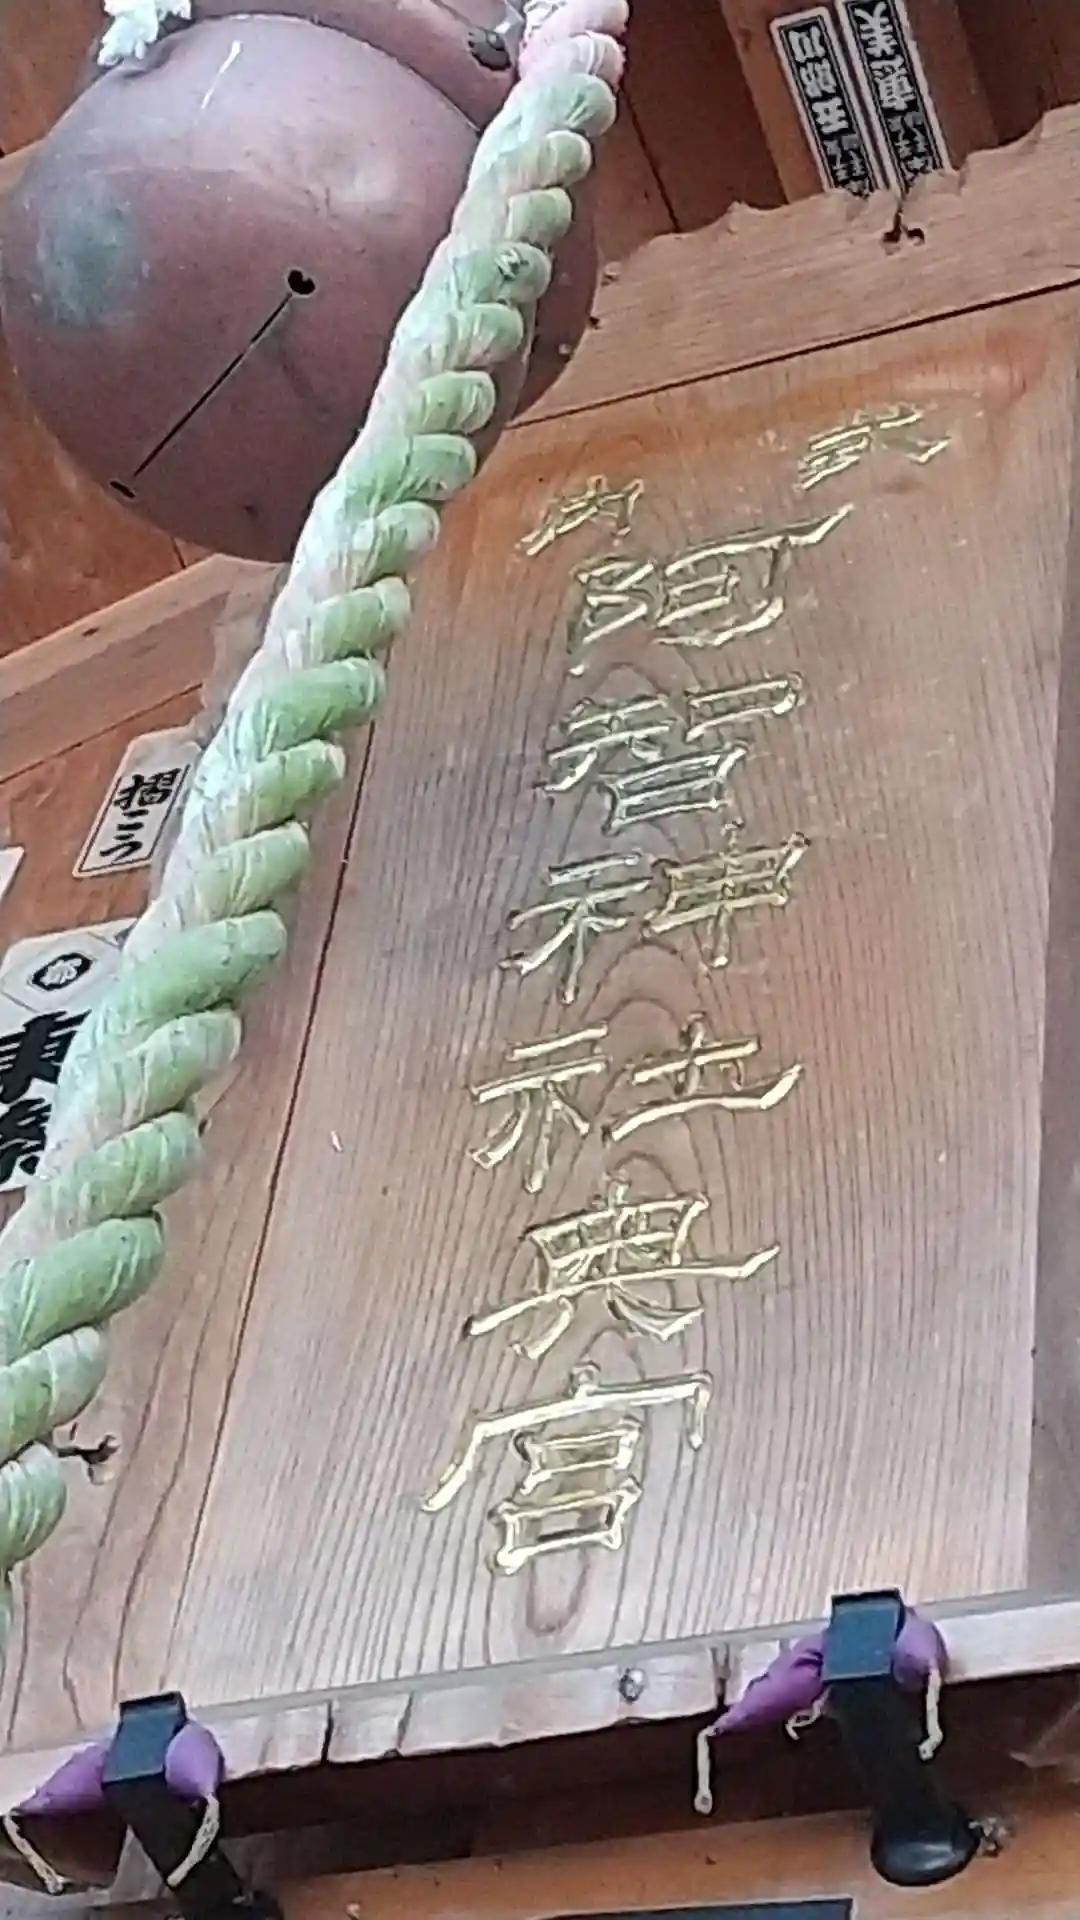 式内
阿智神社奥宮
摺こう